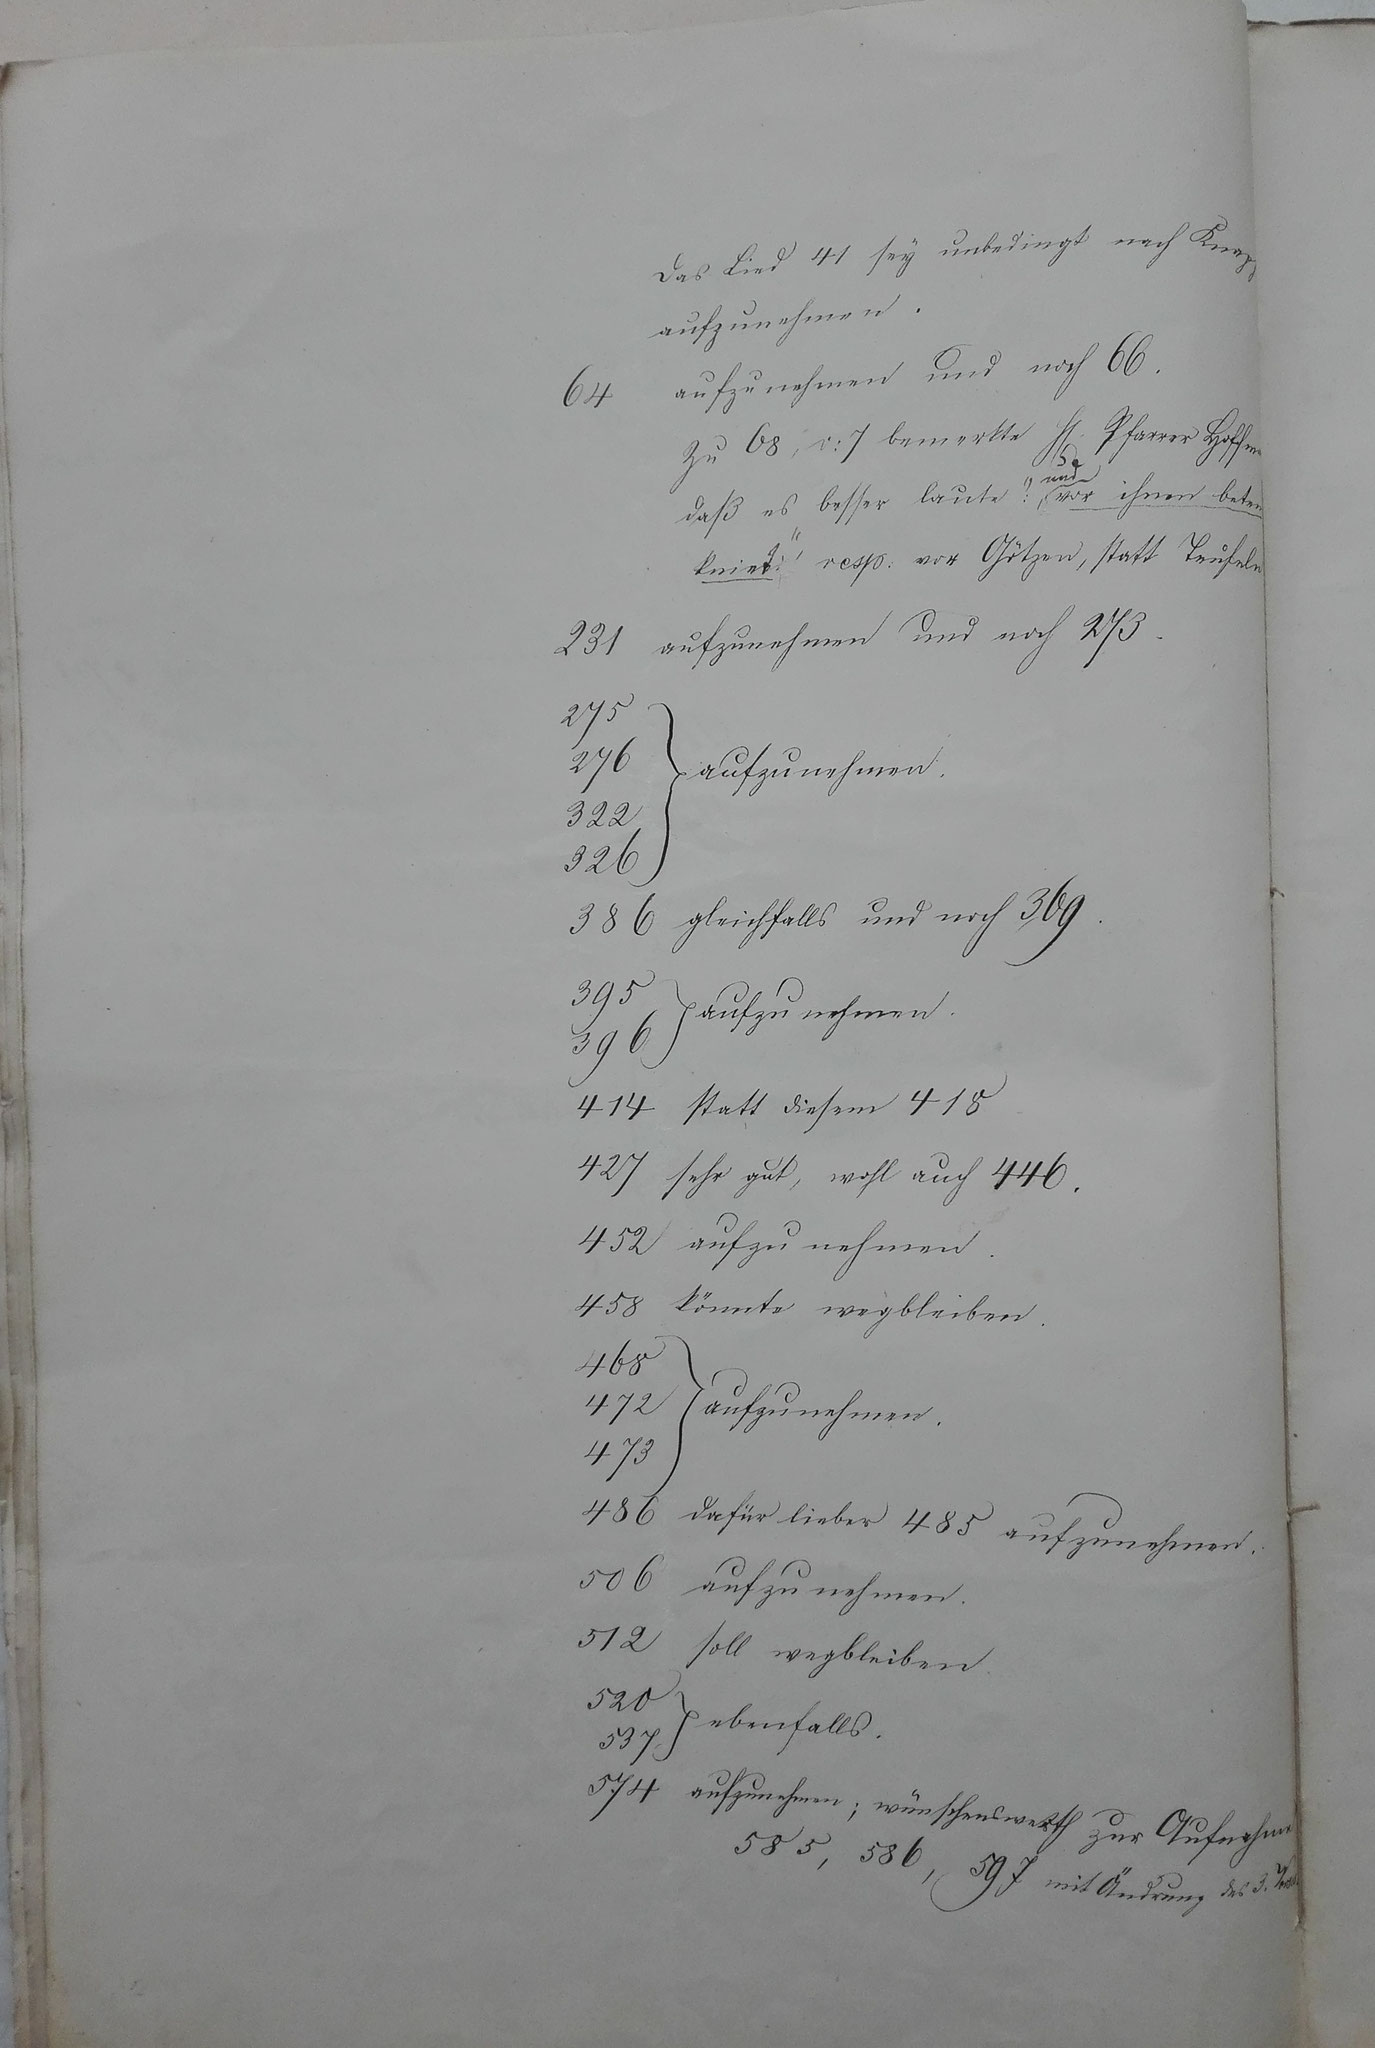 Das Lied 41 sey unbedingt nach Knapp
aufzunehmen.
64 aufzunehmen und noch 66.
Zu 68, v: 7 bemerkte H. Pfarrer Hoffm
daß es besser laute: "und vor ihnen beten
kniet", resp. vor Götzen, statt Teufeln
231 aufzunehmen und noch 273.
275
276
322
326
aufzunehmen.
386 gleichfalls und noch 369.
395
396
aufzunehmen.
414 statt diesem 418
427 sehr gut, wohl auch 446.
452 aufzunehmen.
458 könnte wegbleiben.
468
472
473
aufzunehmen.
486 dafür lieber 485 aufzunehmen.
506 aufzunehmen.
512 soll wegbleiben
520
537.
ebenfalls.
574 aufzunehmen; wünschenswerth zur Aufnahme
585, 586, 597 mit Ändrung des 3.